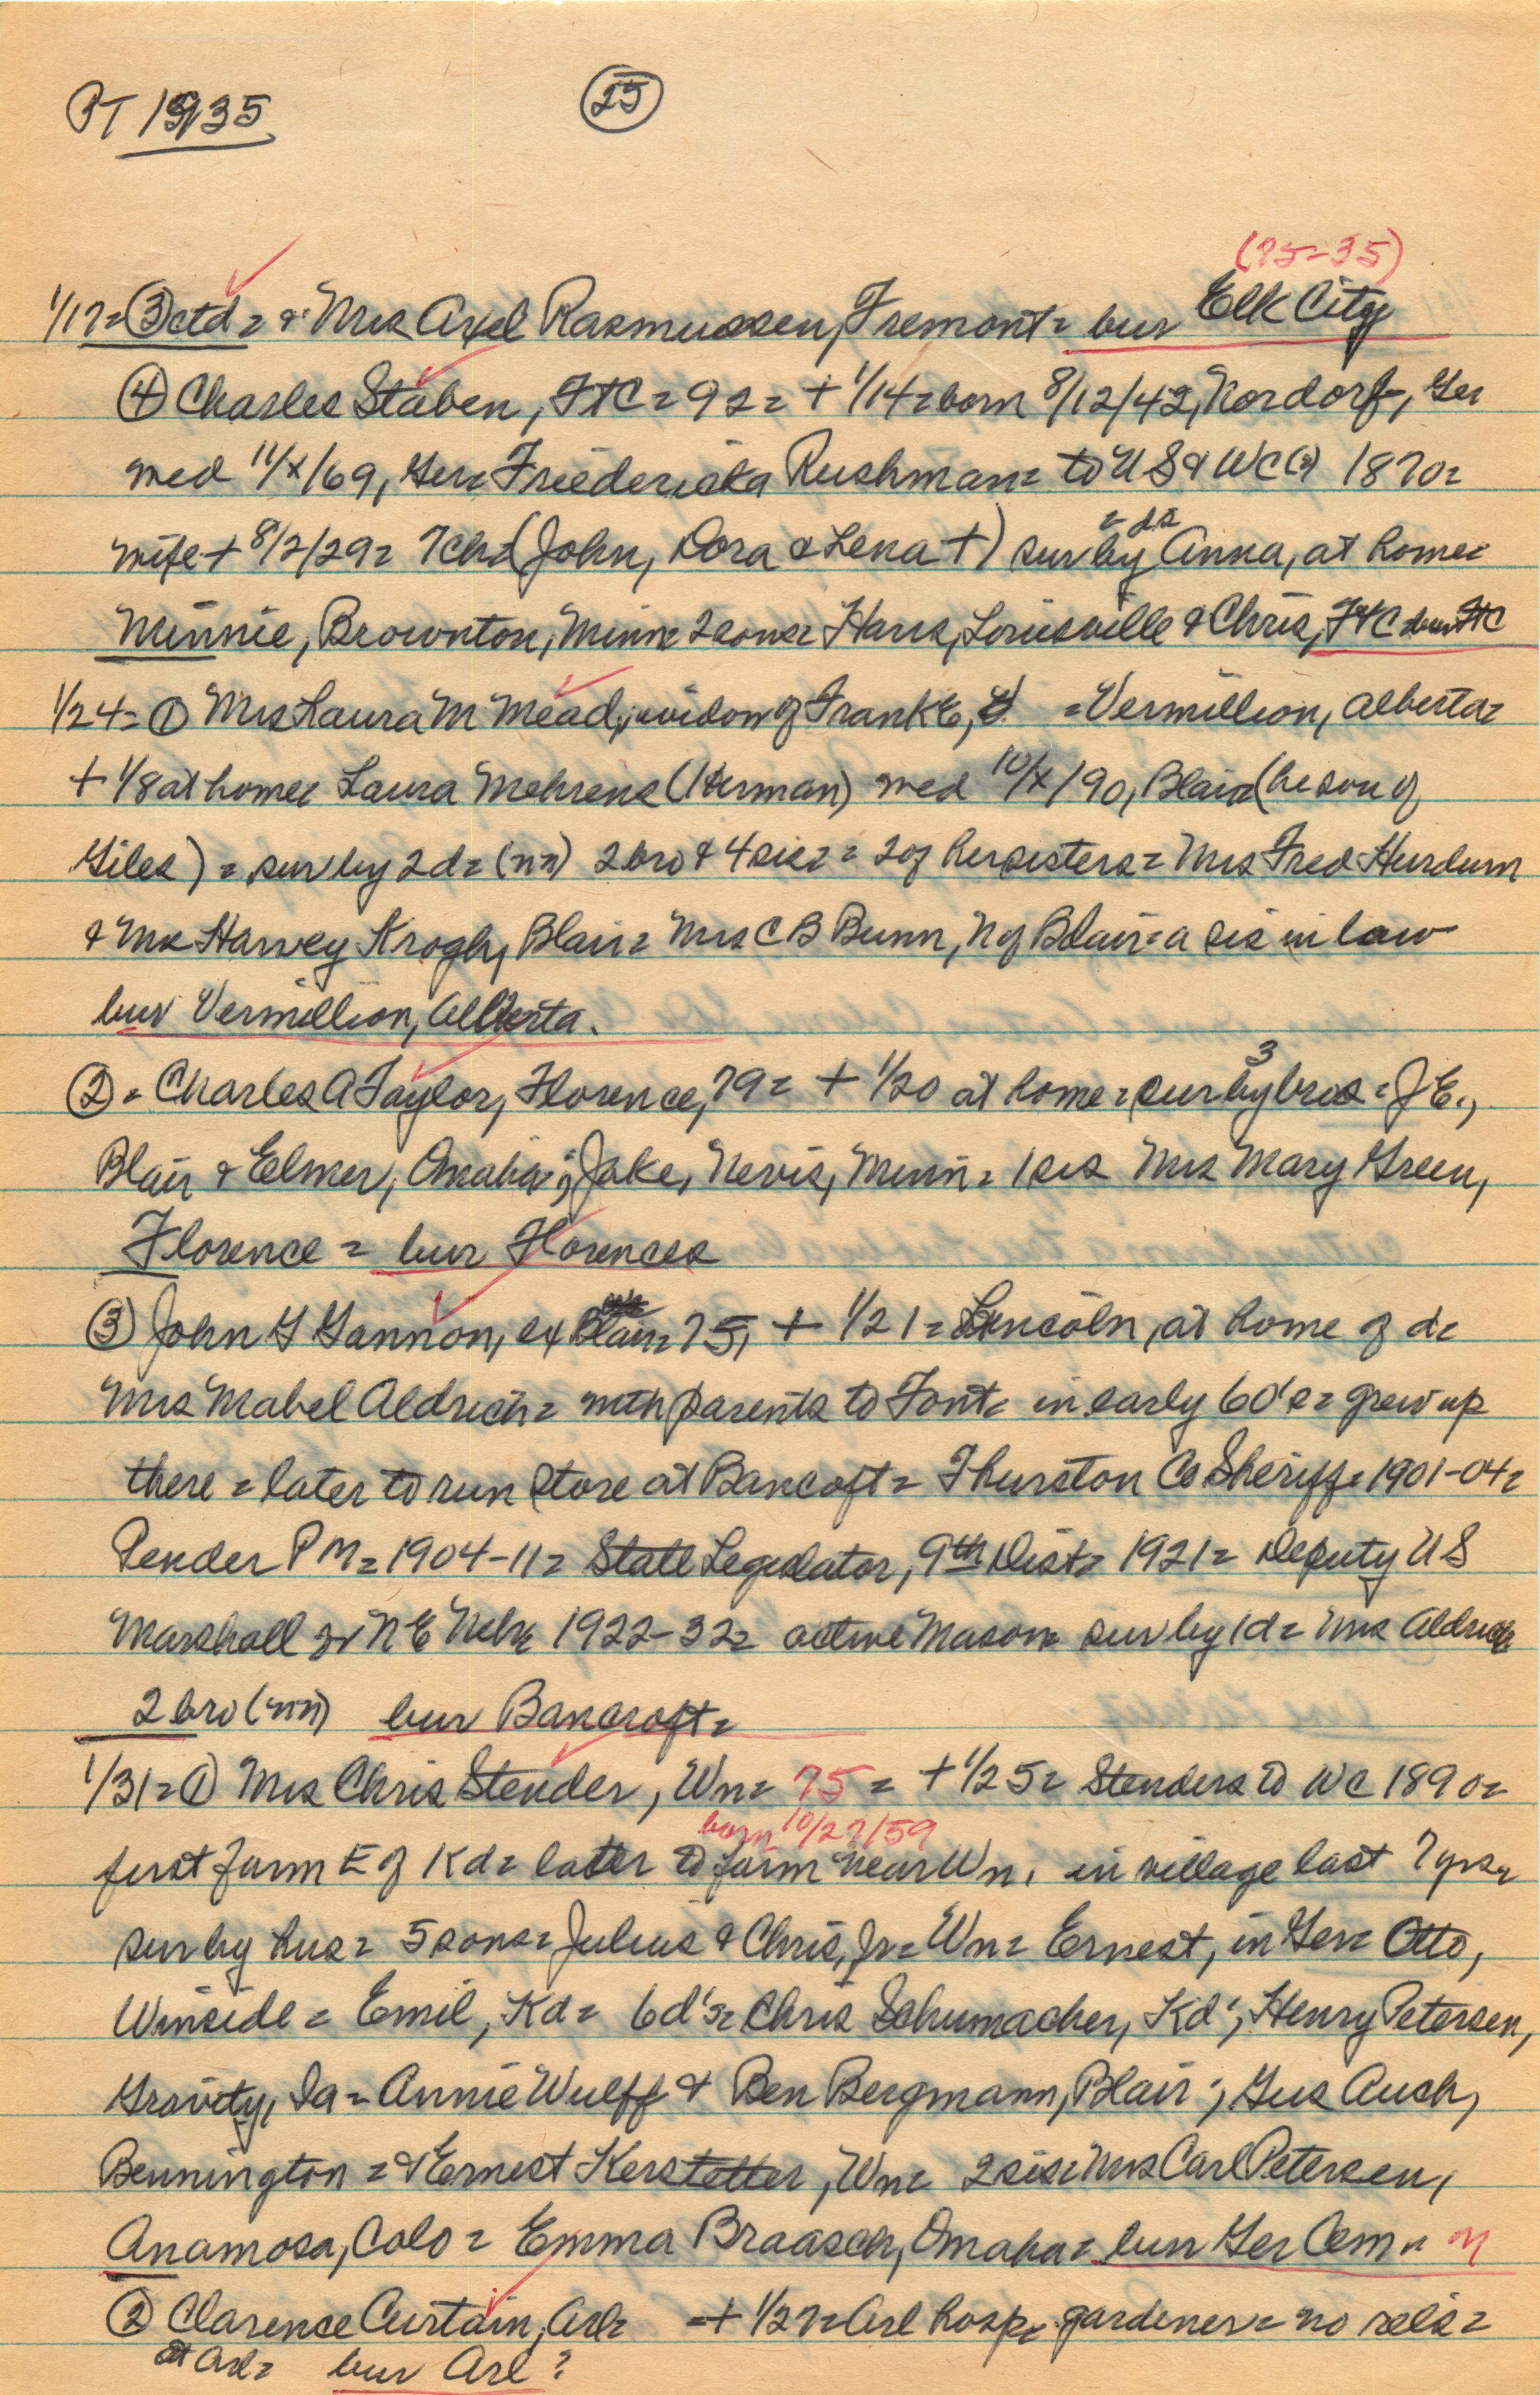 PT 1935
25
(75-35)
1/17= ③ ctd= & Mrs Axel Rasmussen, Fremont= bur Elk City
④ Charles Staben, FtC= 92= + 1/14= born 8/12/42, Nordorf, Ger
med 11/x/69, Ger= Friedericka Rushman= to US & WC(?) 1870=
wife + 8/2/29= 7ch= (John, Dora & Lena +) sur by =ds Anna, at home=
Minnie, Brownton, Minn= 2 sons= Hans, Louisville & Chris, FtC= bur FtC
1/24= ① Mrs Laura M Mead, widow of Frank E, =Vermillion, Alberta=
+ 1/8 at home= Laura Mehrens (Herman) med 10/x/90, Blair= (he son of
Giles) = sur by 2d= (nn) 2 bro & 4 sis= = 2 of her sisters= Mrs Fred Hurdum
& Mrs Harvey Krogh, Blair= Mrs C B Bunn, N of Blair= a sis in law
bur Vermillion, Alberta.
②= Charles A Taylor, Florence, 79= + 1/20 at home= sur by 3 bros= J E.,
Blair & Elmer, Omaha; Jake, Nevis, Minn= 1 sis Mrs Mary Green,
Florence = bur Florence=
③ John G Gannon, ex Blair= 75, + 1/21= Lincoln, at home of d=
Mrs Mabel Aldrich= with parents to Font= in early 60's= grew up
there = later to run store at Bancoft= Thurston Co Sheriff= 1901-04=
Pender PM= 1904-11= State Legislator, 9th Dist= 1921= Deputy US
Marshall for NE Neb= 1922-32= active Mason= sur by 1d= Mrs Aldrich
2 bro (nn) bur Bancroft=
1/31= ① Mrs Chris Stender, Wn= 75 = + 1/25= Stenders to WC 1890=
born 10/27/59
first farm E of Kd= later to farm near Wn, in village last 7 yrs=
sur by hus= 5 sons= Julius & Chris, Jr= Wn= Ernest, in Ger= Otto,
Winside = Emil, Kd= 6 d's= Chris Schumacher, Kd; Henry Petersen,
Gravity, Ia= Annie Wulff & Ben Bergmann, Blair; Gus Auch,
Bennington = & Ernest Kerstetter, Wn= 2 sis= Mrs Carl Petersen,
Anamosa, Colo = Emma Braasch, Omaha= bur Ger Cem
② Clarence Curtain, Arl= =+ 1/27= Arl hosp= gardener= no rels=
at Arl= bur Arl?